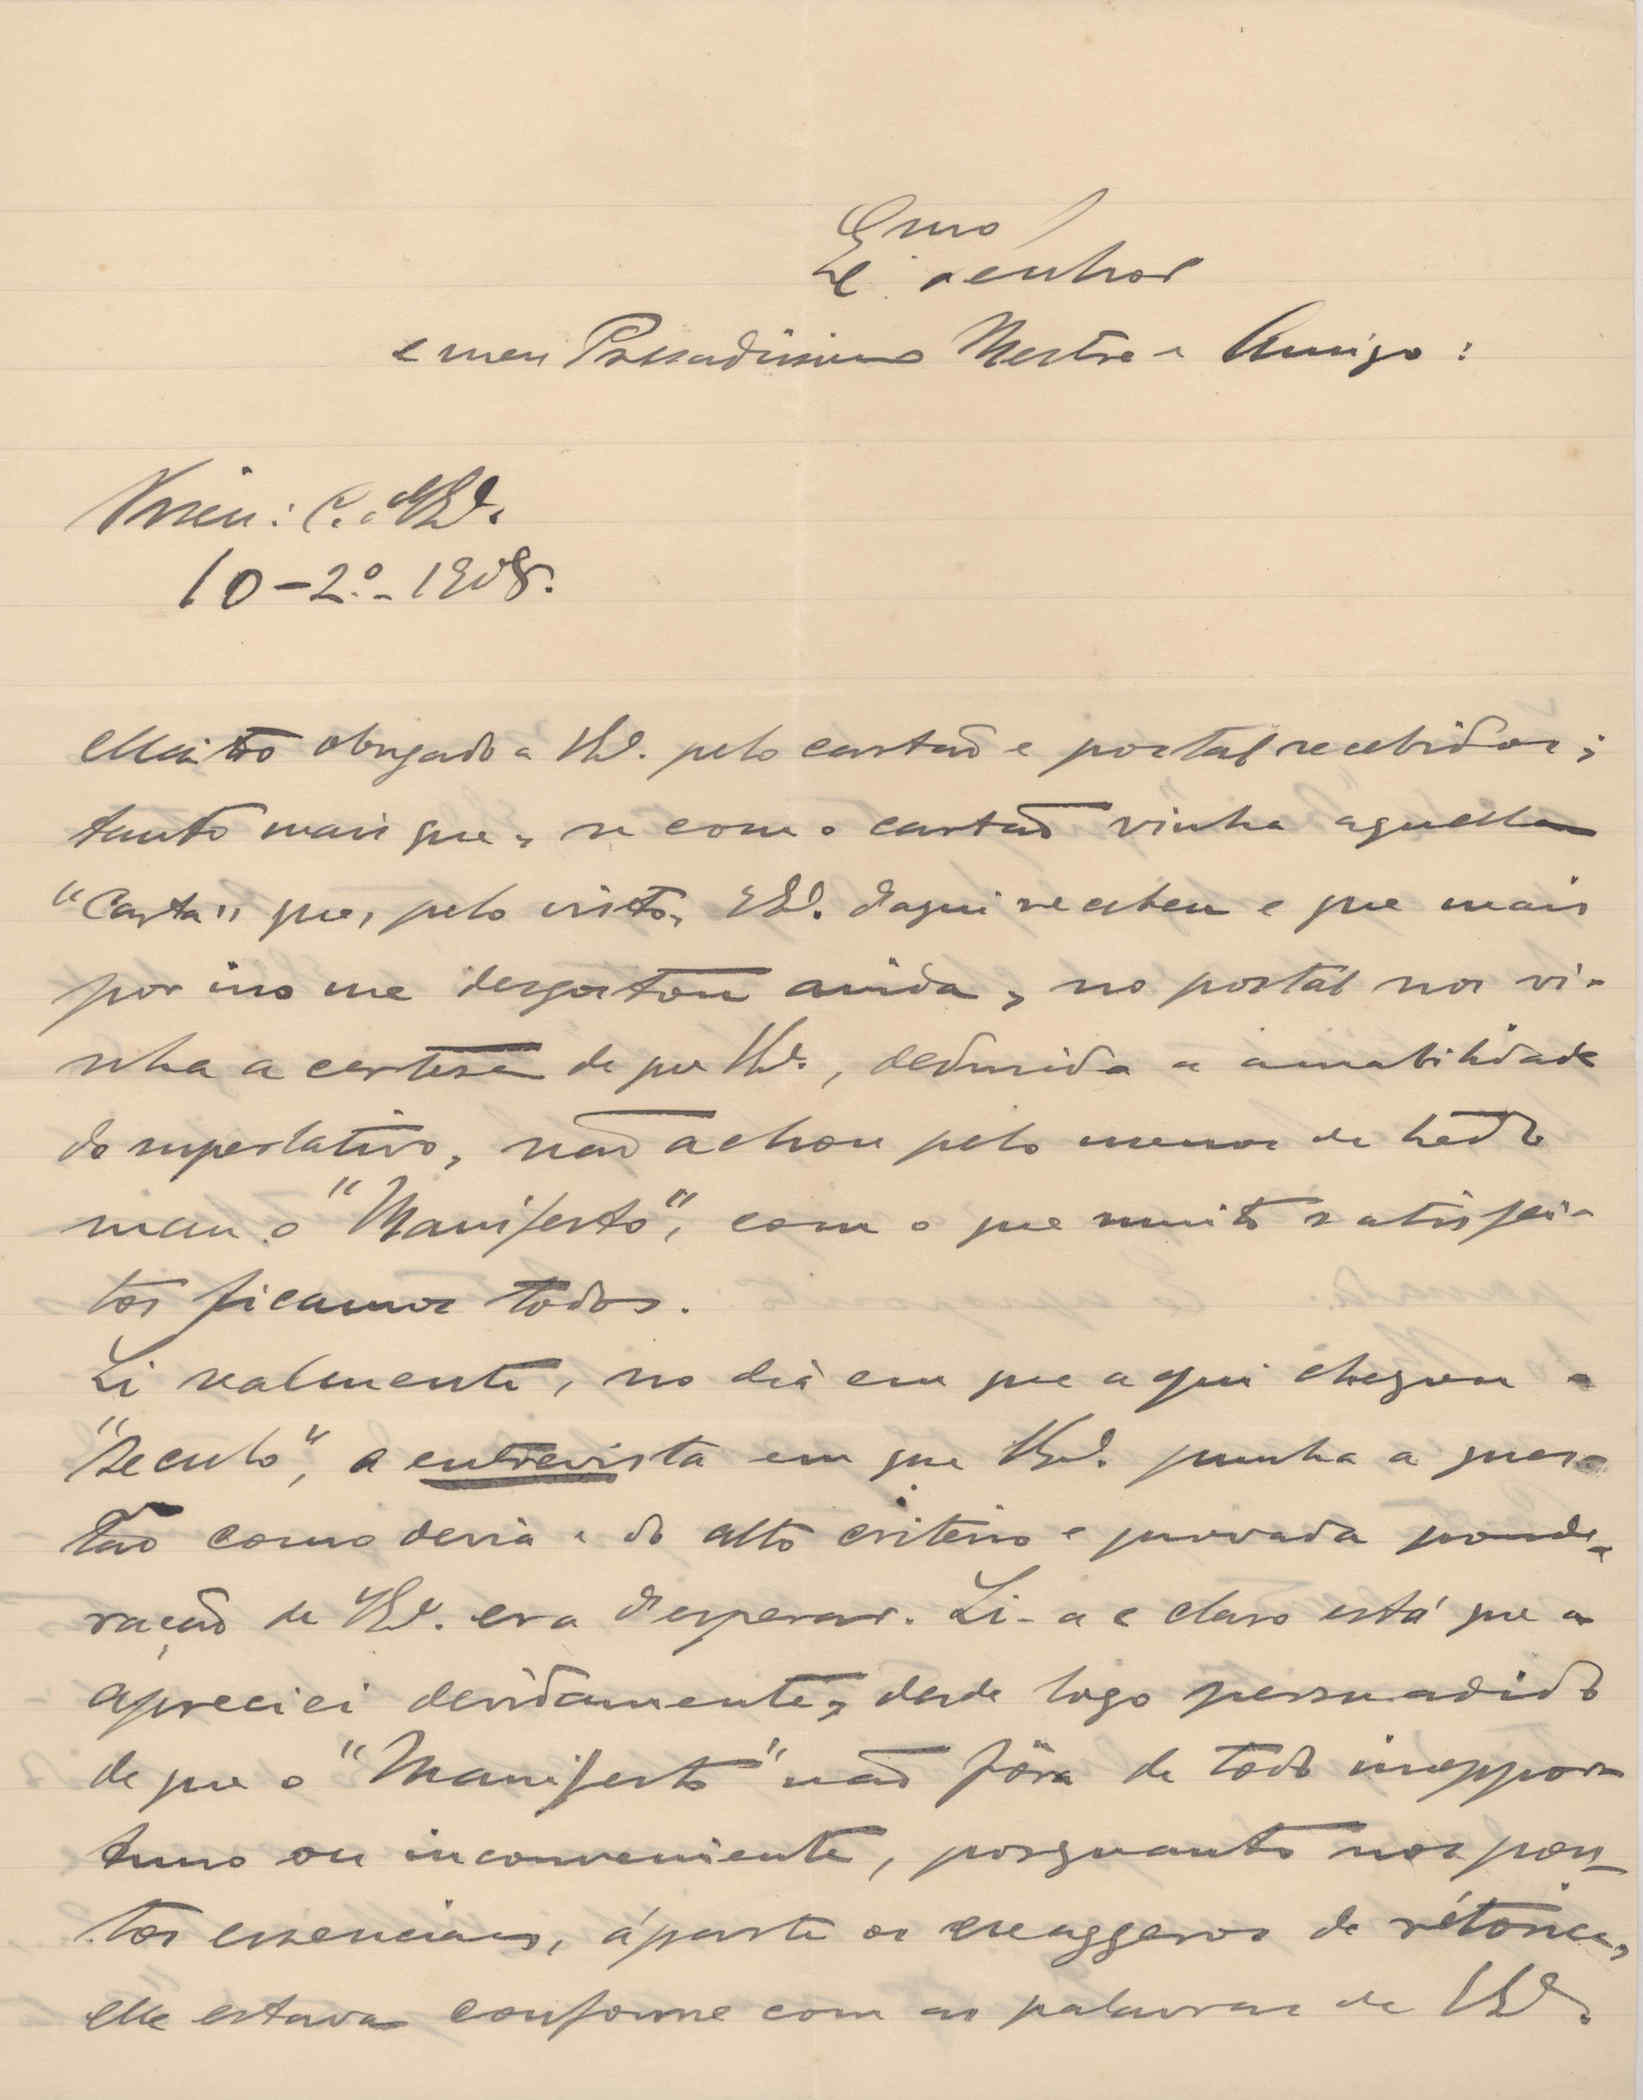 Exmo
Senhor
e meu Presadissimo Mestre e Amigo:
Viseu: C. de V.E.
10-2.º-1908.
Muito obrigado a V.E. pelo cartão e postal recebidos;
tanto mais que, se com o cartão vinha aquella
"Carta" que, pelo visto, V.E. daqui recebeu e que mais
por isso me desgostou ainda, no postal nos vi-
nha a certesa de que V.E., deduzida a amabilidade
do superlativo, não achou pelo menos de todo
mau o "Manifesto", com o que muito satisfei-
tos ficamos todos.
Li realmente, no dia em que aqui chegou o
"Seculo", a entrevista em que V.E. punha a ques-
tão como devia e do alto criterio e provada ponde-
ração de V.E. era d'esperar. Li-a e claro está que a
apreciei devidamente, desde logo persuadido
de que o "Manifesto" não fôra de todo inoppor-
tuno ou inconveniente, porquanto nos pon-
tos essenciaes, áparte os exaggeros de rétorica,
elle estava conforme com as palavras de V.E.